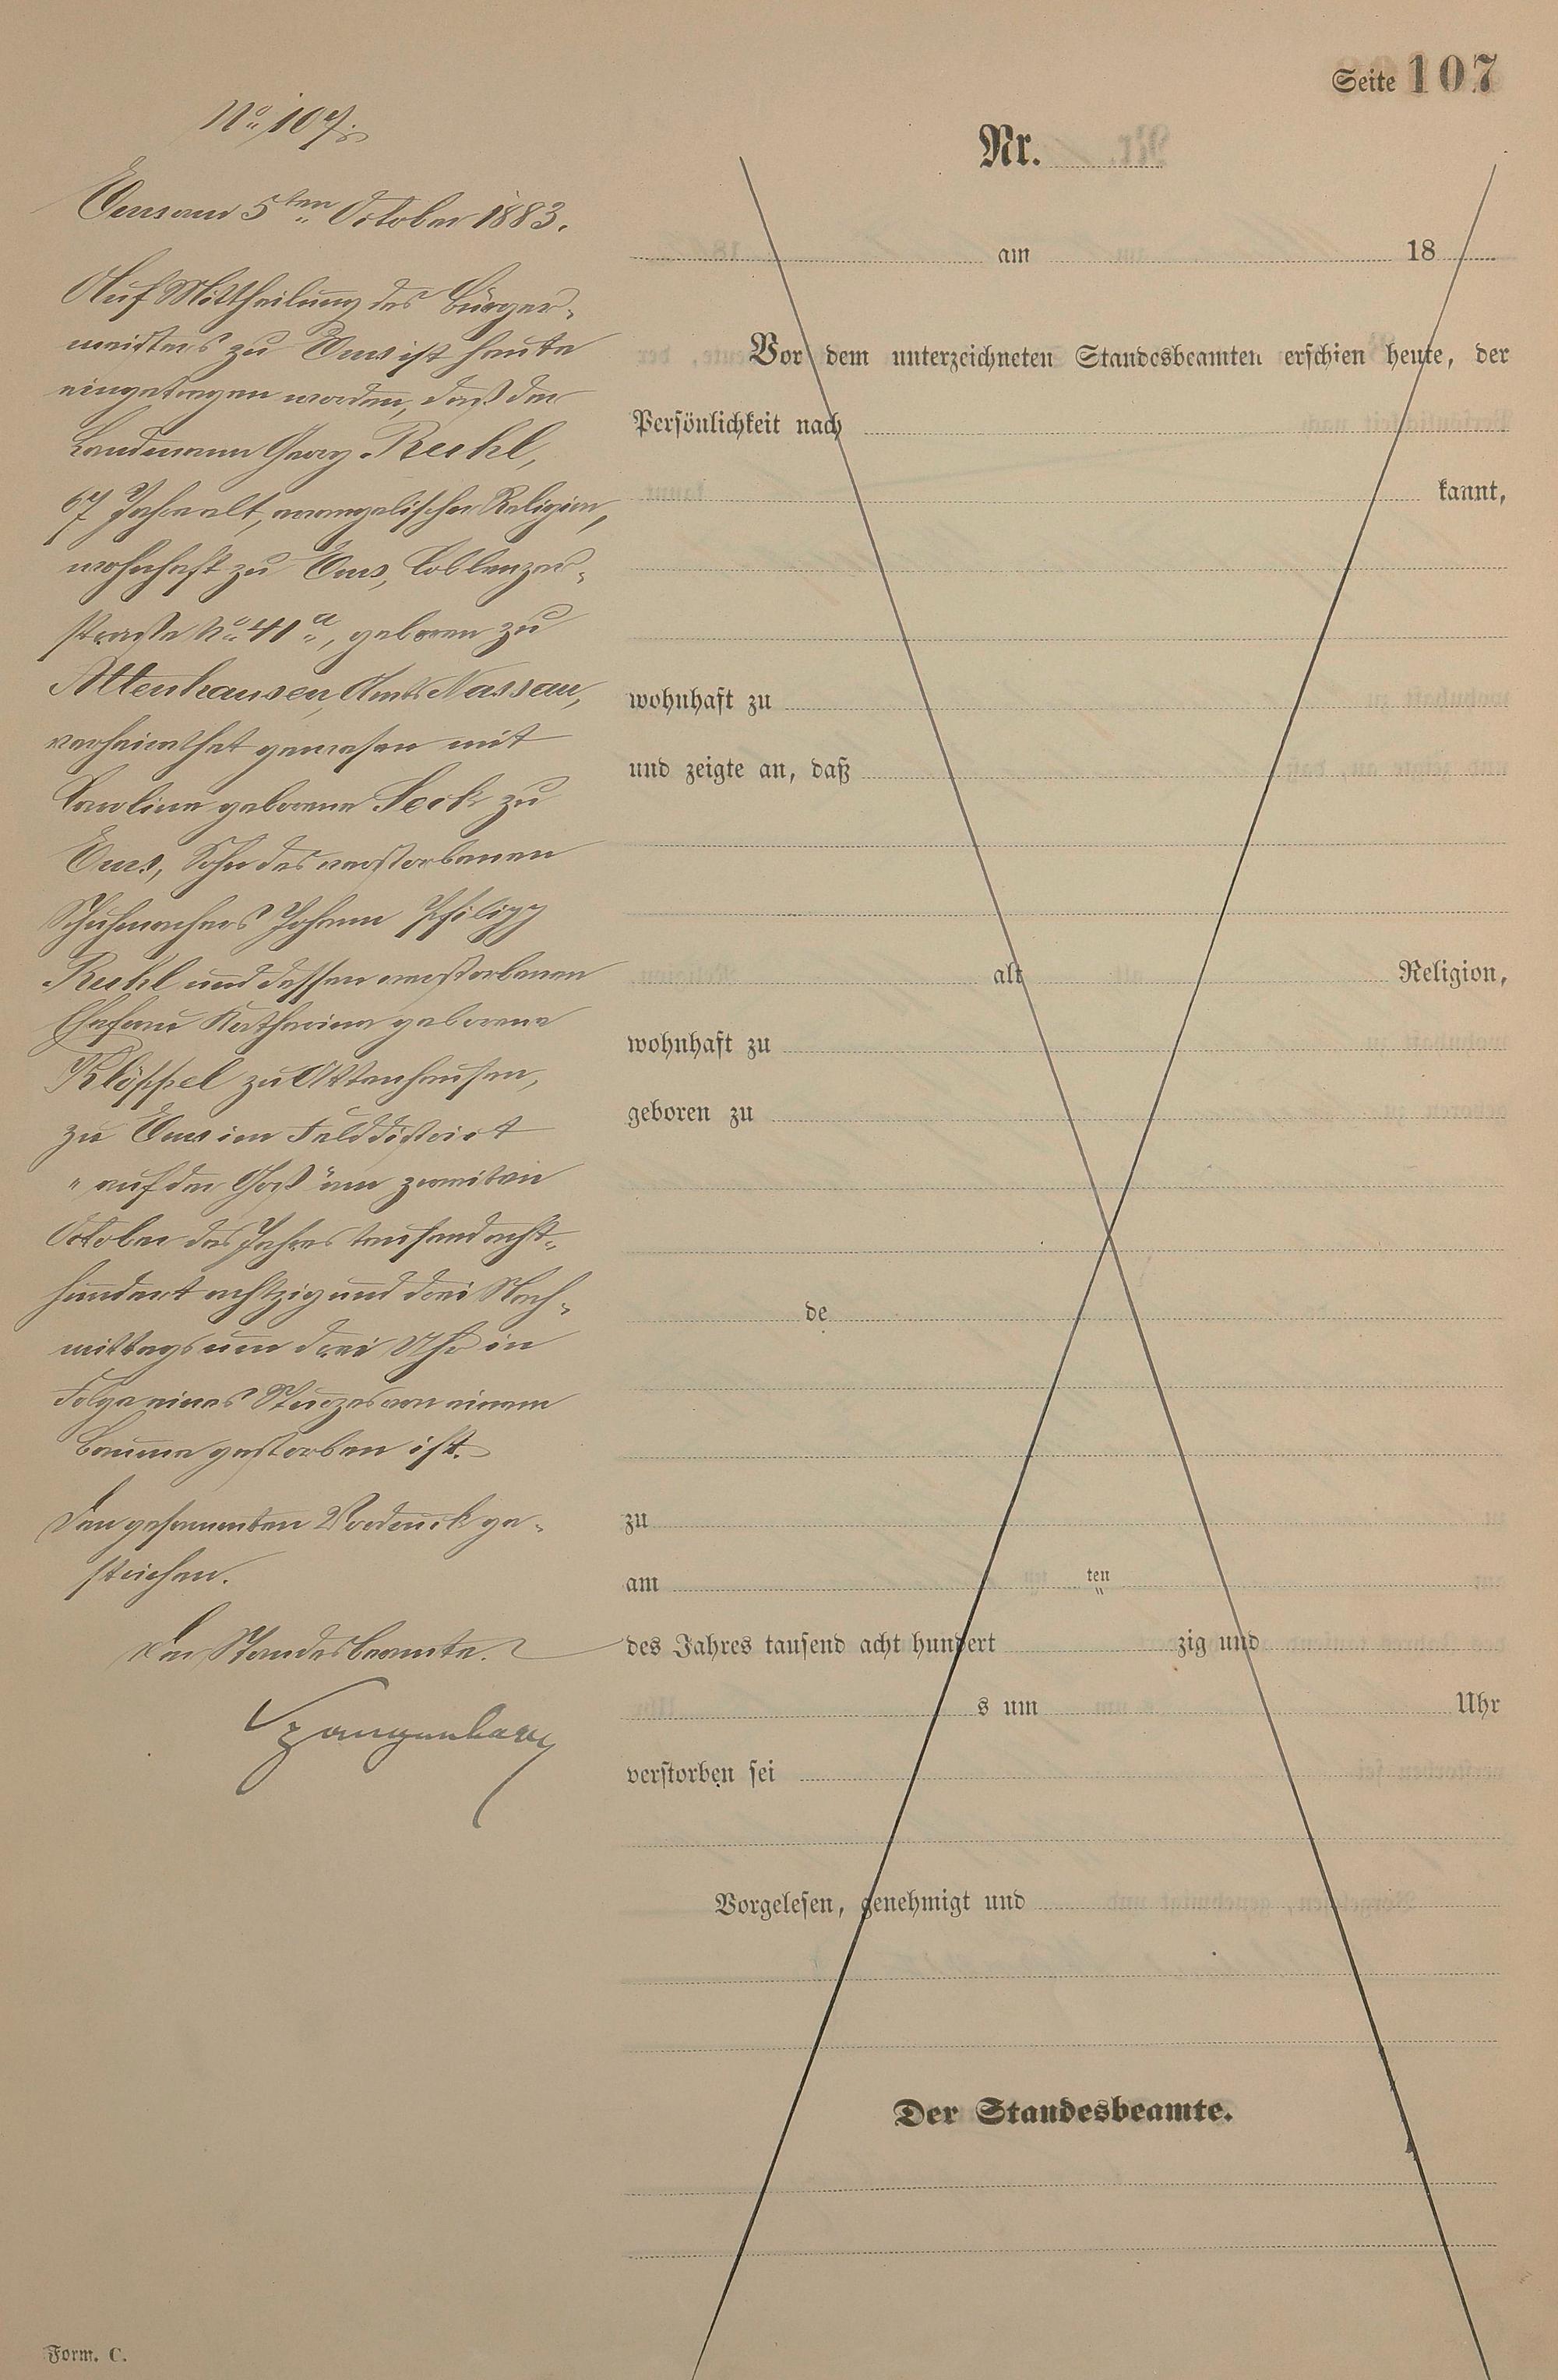 Seite 107
No 107.
Ems am 5ten October 1883.
Auf Mittheilung des Bürger-
meisters zu Ems ist heute
eingetragen worden, daß der
Landmann Georg Ruhl,
67 Jahre alt, evangelischer Religion,
wohnhaft zu Ems, Coblenzer-
straße No 41a, geboren zu
Attenhausen, Amts Nassau,
verheirathet gewesen mit
Caroline geborene Feck zu
Ems, Sohn des verstorbenen
Schuhmachers Johann Philipp
Ruhl und dessen verstorbenen
Ehefrau Katharina geborene
Klöppel zu Attenhausen,
zu Ems im Felddistrict
"auf der " am zweiten
October des Jahres tausend acht-
hundert achtzig und drei Nach-
mittags um drei Uhr in
Folge eines Sturzes von einem
Baume gestorben ist.
Den gesammten Vordruck ge-
strichen.
Der Standesbeamte.
Spangenberg
Nr.
am 18
Vor dem unterzeichneten Standesbeamten erschien heute, der
Persönlichkeit nach
kannt,
wohnhaft zu
und zeigte an, daß
alt Religion,
wohnhaft zu
geboren zu
de
zu
am ten
des Jahres tausend acht hundert zig und
s um Uhr
verstorben sei
Vorgelesen, genehmigt und
Der Standesbeamte.
Form. C.